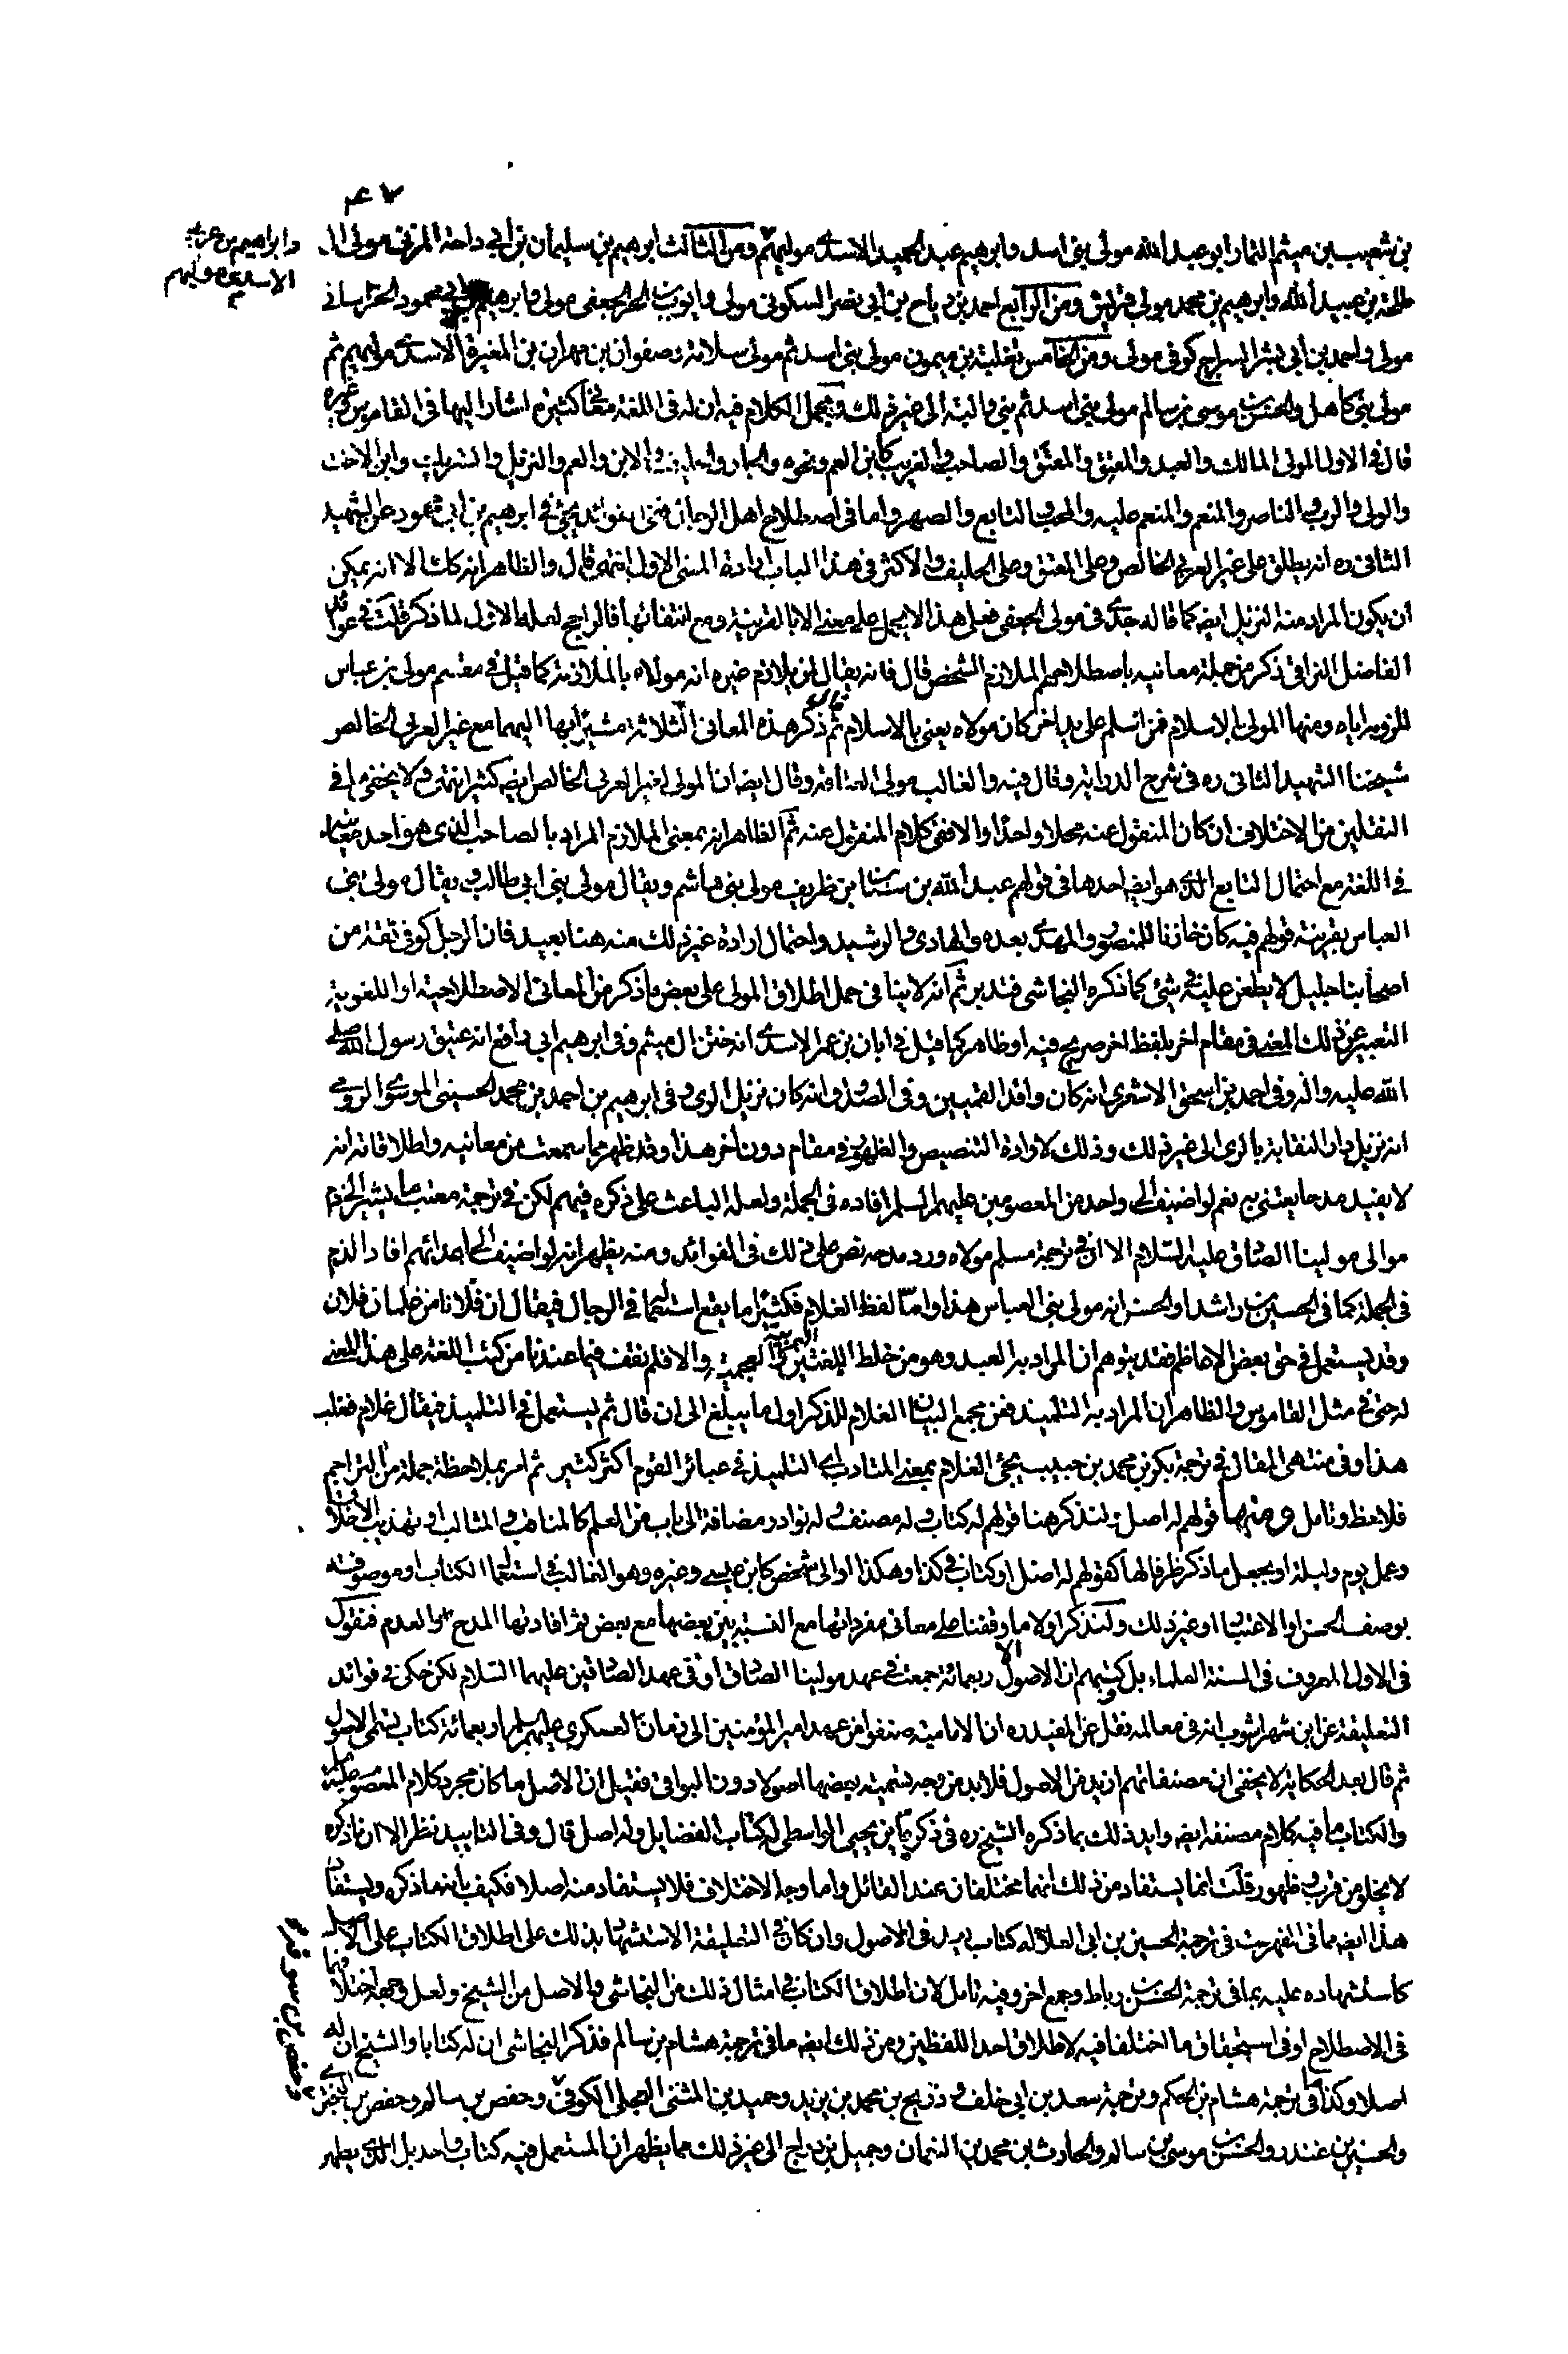 ۴۷
بن شعيب بن ميثم التمار ابو عبد الله مولى بنى اسد وابرهيم عبد الحميد الاسدى مولیهم ومن الثالث ابرهيم بن سليمان بن ابى داحة المزنى مولى ال
وابراهيم بن عربى
الاسدى مولیهم
طلحة بن عبيد الله وابرهيم بن محمد مولى قريش ومن الرابع احمد بن رياح بن ابى نصر السكونى مولى وايوب بن الحر الجعفى مولى وابرهيم بن ابى محمود الخراسانى
مولى واحمد بن ابى بشر السراج كوفى مولى ومن الخامس ثعلبة بن ميمون مولى بنى اسد ثم مولى سلامة وصفوان بن مهران بن المغيرة الاسدى مولیهم ثم
مولى بنى كاهل والحسن بن موسى بن سالم مولى بنى اسد ثم بنى والبة الى غير ذلك ومجمل الكلام فيه ان له فى اللغة معانى كثيرة اشار اليها فى القاموس وغيره
قال فى الاول المولى المالك والعبد والمعتق والمعتق والصاحب والقريب كابن العم ونحوه والجار والحليف والابن والعم والنزيل والشريك وابن الاخت
والولى والرب والناصر والمنعم والمنعم عليه والمحب والتابع والصهر واما فى اصطلاح اهل الرجال ففى الفوائد يجئ فى ابرهيم بن ابى محمود عن الشهيد
الثانى ره انه يطلق على غير العربى الخالص وعلى المعتق وعلى الحليف والاكثر فى هذا الباب ارادة المعنى الاول انتهى قال والظاهر انه كذلك الا انه يمكن
ان يكون المراد منه النزيل ايضا كما قاله جدى فى مولى الجعفى فعلى هذا لا يحمل على معنى الا بالقرينة ومع انتفائها فالراجح لعله الاول لما ذكر قلت فى عوائد
الفاضل النراقى ذكر من جملة معانيه باصطلاحهم الملازم الشخص قال فانه يقال لمن يلازم غيره انه مولاه بالملازمة كما قيل فى مقسم مولى بن عباس
للزومه اياه ومنها المولى بالاسلام فمن اسلم على يد اخر كان مولاه يعنى بالاسلام ثم ذكر هذه المعانى الثلاثة مشيرا بها اليهما مع غير العربى الخالص
شيخنا الشهيد الثانى ره فى شرح الدراية وقال فيه والغالب مولى العتاقة وقال ايضا ان المولى لغير العربى الخالص ايضا كثير انتهى ولا يخفى ما فى
النقلين من الاختلاف ان كان المنقول عنه محلا واحدا والا ففى كلام المنقول عنه ثم الظاهر انه بمعنى الملازم المراد بالصاحب الذى هو احد معانيه
فى اللغة مع احتمال التابع الذى هو ايضا احدها فى قولهم عبد الله بن سنان بن ظريف مولى بنى هاشم ويقال مولى بنى ابى طالب ويقال مولى بنى
العباس بقرينة قولهم فيه كان خازنا للمنصور والمهدى بعده والهادى والرشيد واحتمال ارادة غير ذلك منه هنا بعيد فان الرجل كوفى ثقة من
اصحابنا جليل لا يطعن عليه فى شئ كما ذكره النجاشى فتدبر ثم انه لا ينافى حمل اطلاق المولى على بعض ما ذكر من المعانى الاصطلاحية او اللغوية
التعبير عن ذلك المعنى فى مقام اخر بلفظ اخر صريح فيه او ظاهر كما قيل فى ابان بن عمر الاسدى انه ختن ال ميثم وفى ابرهيم ابى رافع انه عتيق رسول الله صلى
الله عليه واله وفى احمد بن اسحق الاشعرى انه كان وافد القميين وفى الصدوق انه كان نزيل الرى وفى ابرهيم بن احمد بن محمد الحسينى الموسوى الرومى
انه نزيل دار النقابة بالرى الى غير ذلك وذلك لارادة التنصيص والظهور فى مقام دون اخر هذا وقد ظهر مما سمعت من معانيه واطلاقاته انه
لا يفيد مدحا يعتنى به نعم لو اضيف الى واحد من المعصومين عليهم السلم افاده فى الجملة ولعله الباعث على ذكره فيهم لكن فى ترجمة معتب ما يشير الى ذم
موالى مولينا الصادق عليه السلام الا ان فى ترجمة مسلم مولاه ورد مدحه نص على ذلك فى الفوائد ومنه يظهر انه لو اضيف الى اعدائهم افاد الذم
فى الجملة كما فى الحسين بن راشد او الحسن انه مولى بنى العباس هذا واما لفظ الغلام فكثيرا ما يقع استعماله فى الرجال فيقال ان فلانا من غلمان فلان
وقد يستعمل فى حق بعض الاعاظم فقد يتوهم ان المراد به العبد وهو من خلط اللغتين العربية العجمية والا فلم نقف فيما عندنا من كتب اللغة على هذا المعنى
له حتى فى مثل القاموس والظاهر ان المراد به التلميذ ففى مجمع البيان الغلام للذكر اول ما يبلغ الى ان قال ثم يستعمل فى التلميذ فيقال غلام ثعلب
هذا وفى منتهى المقال فى ترجمة بكر بن محمد بن حبيب يجئ الغلام بمعنى المتادب اى التلميذ فى عبائر القوم اكثر كثير ثم امر بملاحظة جملة من التراجم
فلاحظ وتامل ومنها قولهم له اصل ولنذكر هنا قولهم له كتاب وله مصنف وله نوادر مضافة الى باب من العلم كالمناقب والمثالب او تهذيب الاخلاق
وعمل يوم وليلة او يجعل ما ذكر ظرفا لها كقولهم له اصل او كتاب فى كذا وهكذا او الى شخص كابن عيسى وغيره وهو الغالب فى استعمال الكتاب او موصوفة
بوصف الحسن او الاعتبار او غير ذلك ولنذكر اولا ما وقفنا على معانى مفرداتها مع النسبة بين بعضها مع بعض ثم افادتها المدح والعدم فنقول
فى الاول المعروف فى السنة العلماء بل كتبهم ان الاصول الاربعمائة جمعت فى عهد مولينا الصادق او فى عهد الصادقين عليهما السلام لكن حكى فى فوائد
التعليقة عن ابن شهراشوب انه فى معالمه نقل عن المفيد ره ان الامامية صنفوا من عهد امير المؤمنين الى زمان العسكرى عليهم السلم اربعمائة كتاب تسمى الاصول
ثم قال بعد الحكاية لا يخفى ان مصنفاتهم ازيد من الاصول فلابد من وجه تسمية بعضها اصولا دون البواقى فقيل ان الاصل ما كان مجرد كلام المعصوم عليه
والكتاب ما فيه كلام مصنفه ايضا وايد ذلك بما ذكره الشيخ ره فى زكريا بن يحيى الواسطى له كتاب الفضايل وله اصل قال وفى التاييد نظر الا ان ما ذكره
لا يخلو من قرب وظهور قلت انما يستفاد من ذلك انهما مختلفان عند القائل واما وجه الاختلاف فلا يستفاد منه اصلا فكيف بانه ما ذكره ويستفاد
هذا ايضا مما فى الفهرست فى ترجمة الحسين بن ابى العلا له كتاب يعد فى الاصول وان كان فى التعليقة الاستشهاد بذلك على اطلاق الكتاب على الاصل
كاستشهاده عليه بما فى ترجمة الحسن بن رباط وجمع اخر وفيه تامل لان اطلاق الكتاب فى امثال ذلك من النجاشى والاصل من الشيخ ولعل وجهه اختلافهما
فى الاصطلاح او فى استحقاق ما اختلفا فيه لاطلاق احد اللفظين ومن ذلك ايضا ما فى ترجمة هشام بن سالم فذكر النجاشى ان له كتابا والشيخ ان له
اصلا وكذا فى ترجمة هشام بن الحكم وترجمة سعد بن ابى خلف وذريح بن محمد بن يزيد وحميد بن المثنى العجلى الكوفى وحفص بن سالم وحفص بن البخترى
وحفص بن سوقة
والحسين بن غندر والحسن بن موسى بن سالم والحارث بن محمد بن النعمان وجميل بن دراج الى غير ذلك مما يظهر ان المستعمل فيه كتاب واحد بل الذى يظهر